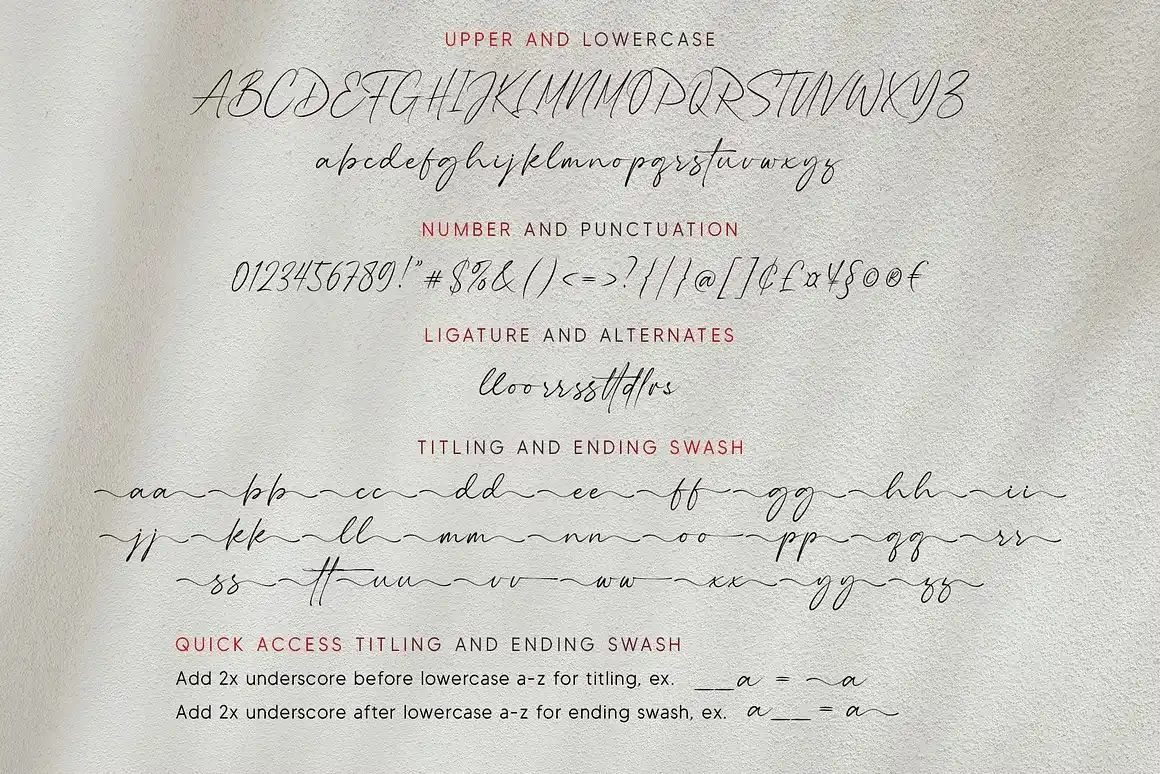 UPPER AND LOWERCASE
ABCDEFGHIJKLMNMOPQRSTUVWXYZ
abcdefghijklmnopqrstuvwxyz
NUMBER AND PUNCTUATION
0123456789!"#$%&()<=>?{|}@[]¢£¤¥§©®€
LIGATURE AND ALTERNATES
lloorrssttdlrs
TITLING AND ENDING SWASH
aa bb cc dd ee ff gg hh ii
jj kk ll mm nn oo pp qq rr
ss tt uu vv ww xx yy zz
QUICK ACCESS TITLING AND ENDING SWASH
Add 2x underscore before lowercase a-z for titling, ex. __a = ~a
Add 2x underscore after lowercase a-z for ending swash, ex. a__ = a~